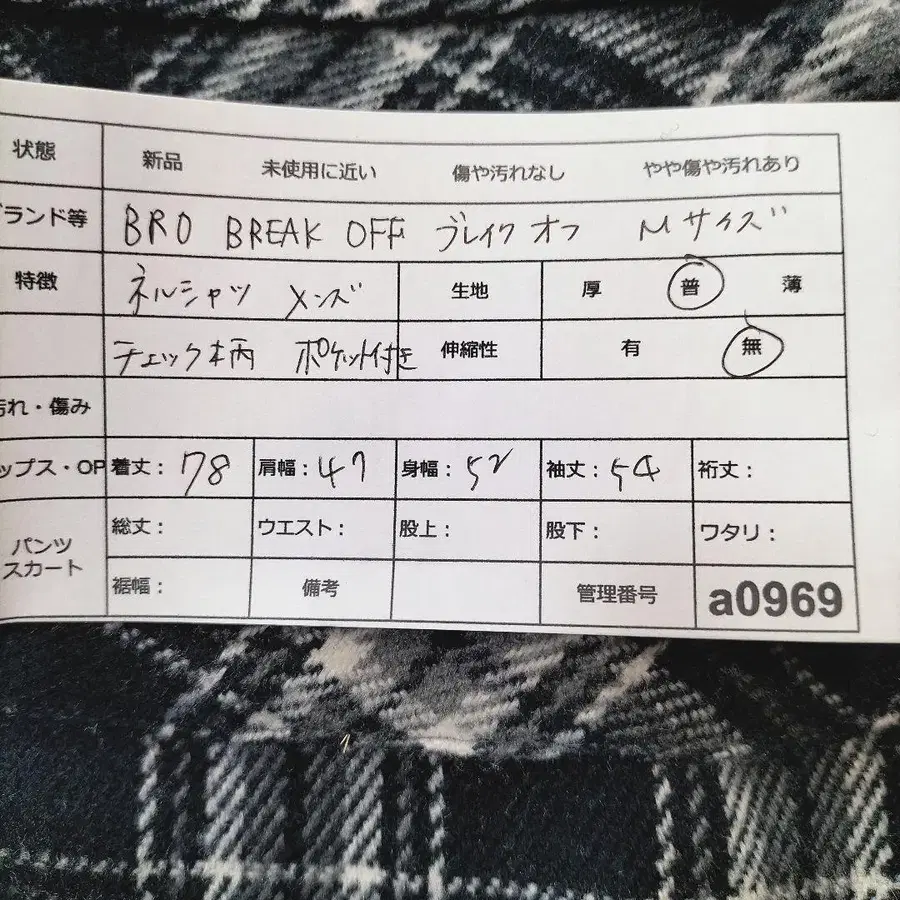 状態 新品 未使用に近い 傷や汚れなし やや傷や汚れあり
ランド等 BRO BREAK OFF ブレイクオフ Mサイズ
特徴 ネルシャツ メンズ 生地 厚 普 薄
チェック柄 ポケット付き 伸縮性 有 無
汚れ・傷み
ップス・OP 着丈：78 肩幅：47 身幅：52 袖丈：54 裄丈：
パンツ
スカート
総丈： ウエスト： 股上： 股下： ワタリ：
裾幅： 備考 管理番号 a0969